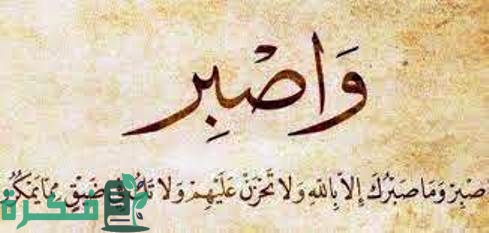 وَاصْبِر
صْبِرْ وَمَا صَبْرُكَ إِلاَّ بِاللهِ وَلاَ تَحْزَنْ عَلَيْهِمْ وَلاَ ضَيْقٍ مِمَّا يَمْكُرُو
فكرة